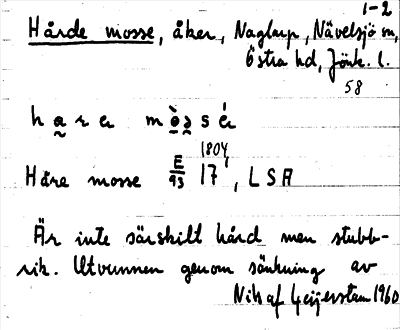 1-2
Hårde mosse, åker, Naglarp, Nävelsjö sn,
Östra hd, Jönk. l.
58
Håre mosse E/93 17, LSA
1804
Är inte särskilt hård men stubb-
rik. Utvunnen genom sänkning av
Nils af Geijerstam 1960